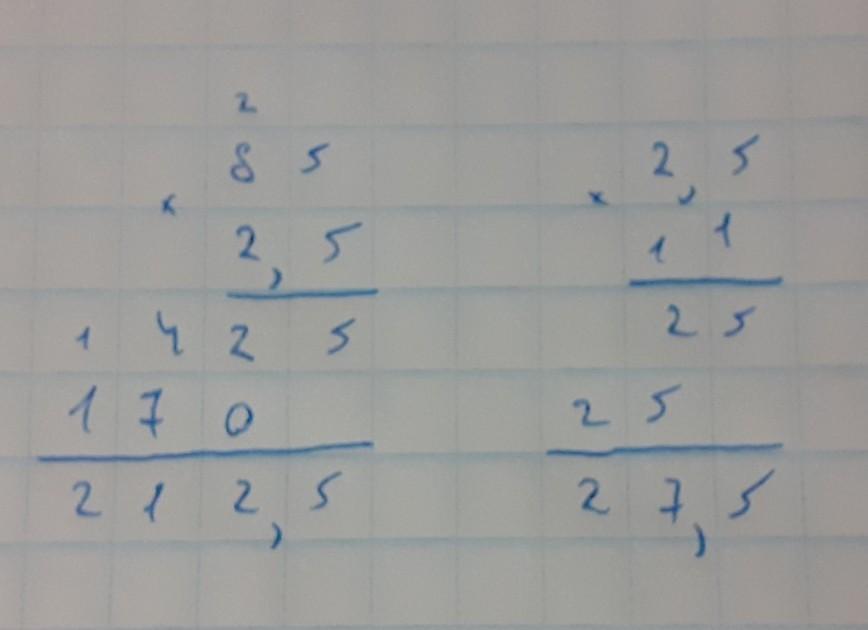 2
8 5
×
2,5
1 4 2 5
1 7 0
2 1 2,5
2,5
×
1 1
2 5
2 5
2 7,5